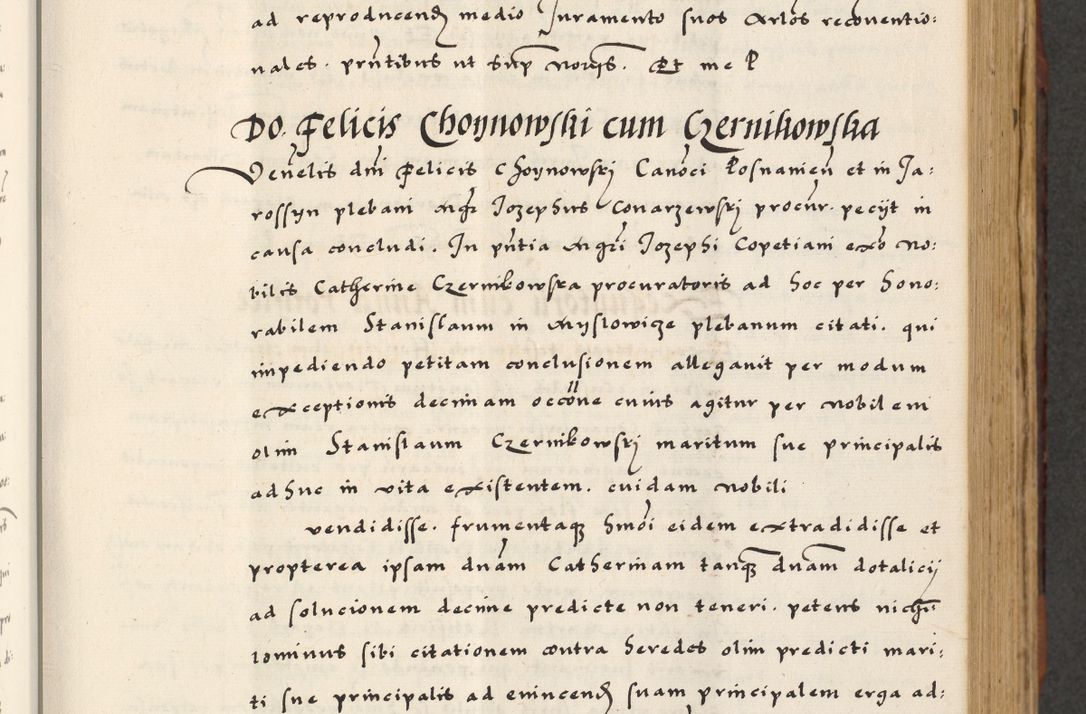 ad reproducend medio Juramento suos Artlos reconventio:
nales. pñtibus ut Sup Noriis. Et me P
Do. Felicis Choynowski cum Czernikowska
Veñelis dñi Felicis Choynowskj Canoci Posnanieñ et in Ja:
rossyn plebani Mgr Jozephus Conarzewskj procur. peciit in
causa concludi. In pñtia Mgri Jozephi Copetiani exo No:
bilis Catherine Czernikowska procuratoris ad hoc per hono:
rabilem Stanislaum in Myslowicze plebanum citati. qui
impediendo petitam conclusionem allegavit per modum
exceptionis decimam occõne cuius agitur per nobilem
olim Stanislaum Czernikowskj maritum sue principalis
adhuc in vita existentem. cuidam nobili
vendidisse. frumentaqȝ hmoi eidem extradidisse et
propterea ipsam dnam Catherinam tanqȝ dnam dotalicij
ad solucionem decime predicte non teneri. petens nicho
lominus sibi citationem contra heredes olim predicti mari:
ti sue principalis ad evincend suam principalem erga ad: